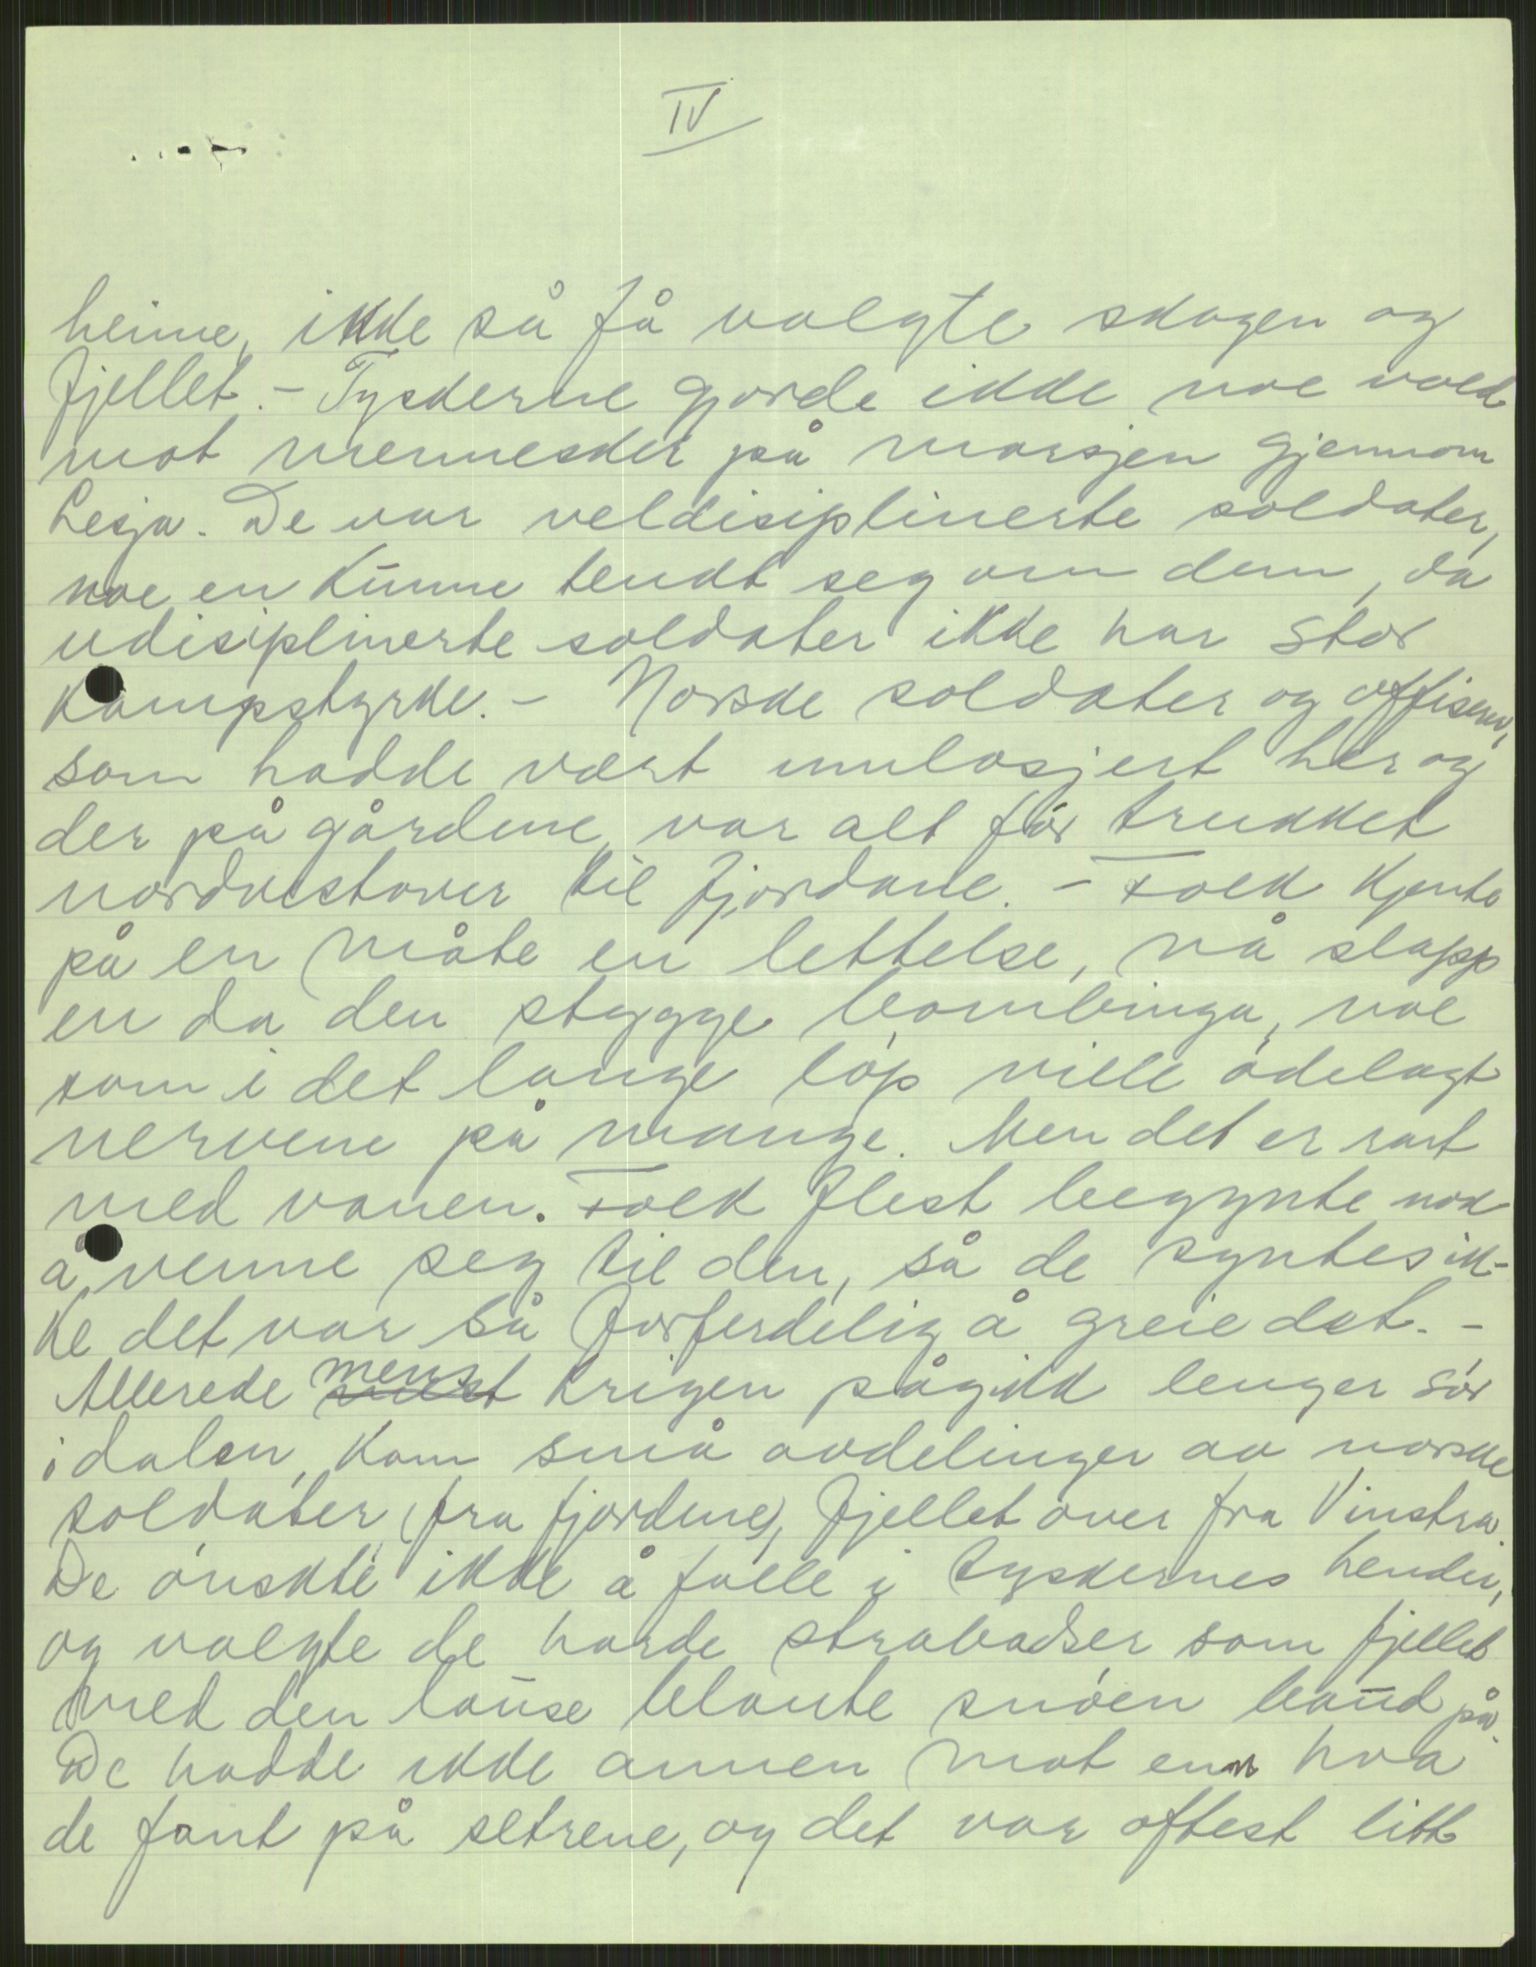 IV
heime, ikke så få valgte skogen og
fjellet. - Tyskerne gjorde ikke noe vold
mot mennesker på marsjen gjennom
Lesja. De var veldisiplinerte soldater,
noe en kunne tenkt seg om dem, da
udisiplinerte soldater ikke har stor
kampstyrke. - Norske soldater og offiserer,
som hadde vært innlosjert her og
der på gårdene, var alt før trukket
nordvestover til fjordane. - Folk kjente
på en måte en lettelse, nå slapp
en da den stygge bombinga, noe
som i det lange løp ville ødelagt
nervene på mange. Men det er rart
med vanen. Folk flest begynte nok
å venne seg til den, så de syntes ik-
ke det var så forferdelig å greie det. -
Allerede mens krigen pågikk lenger sør
i dalen, kom små avdelinger av norske
soldater (fra fjordene), fjellet over fra Vinstra.
De ønskte ikke å falle i tyskernes hender,
og valgte de harde strabadser som fjellet
med den lause blaute snøen baud på.
De hadde ikke annen mat enn hva
de fant på setrene, og det var oftest litt